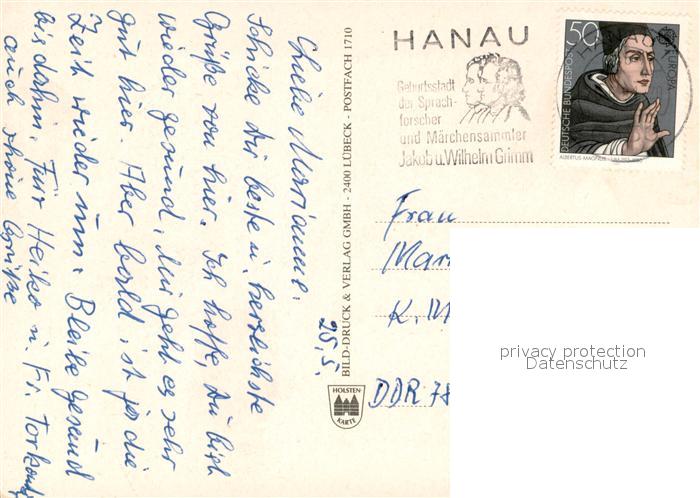 Liebe Marianne.
Schicke Dir beste u. herzlichste
Grüße von hier. Ich hoffe, Du bist
wieder gesund. Mir geht es sehr
gut hier. Aber bald ist ja die
Zeit wieder um. Bleibe gesund
bis dahin. Für Heiko u. Fr.
auch schöne Grüße
25.5.
BILD-DRUCK & VERLAG GMBH - 2400 LÜBECK - POSTFACH 1710
HOLSTEN-
KARTE
HANAU
Geburtsstadt
der Sprach-
forscher
und Märchensammler
Jakob u. Wilhelm Grimm
50
EUROPA
DEUTSCHE BUNDESPOST
ALBERTUS MAGNUS
Frau
Mar
K. M
DDR 78
privacy protection
Datenschutz